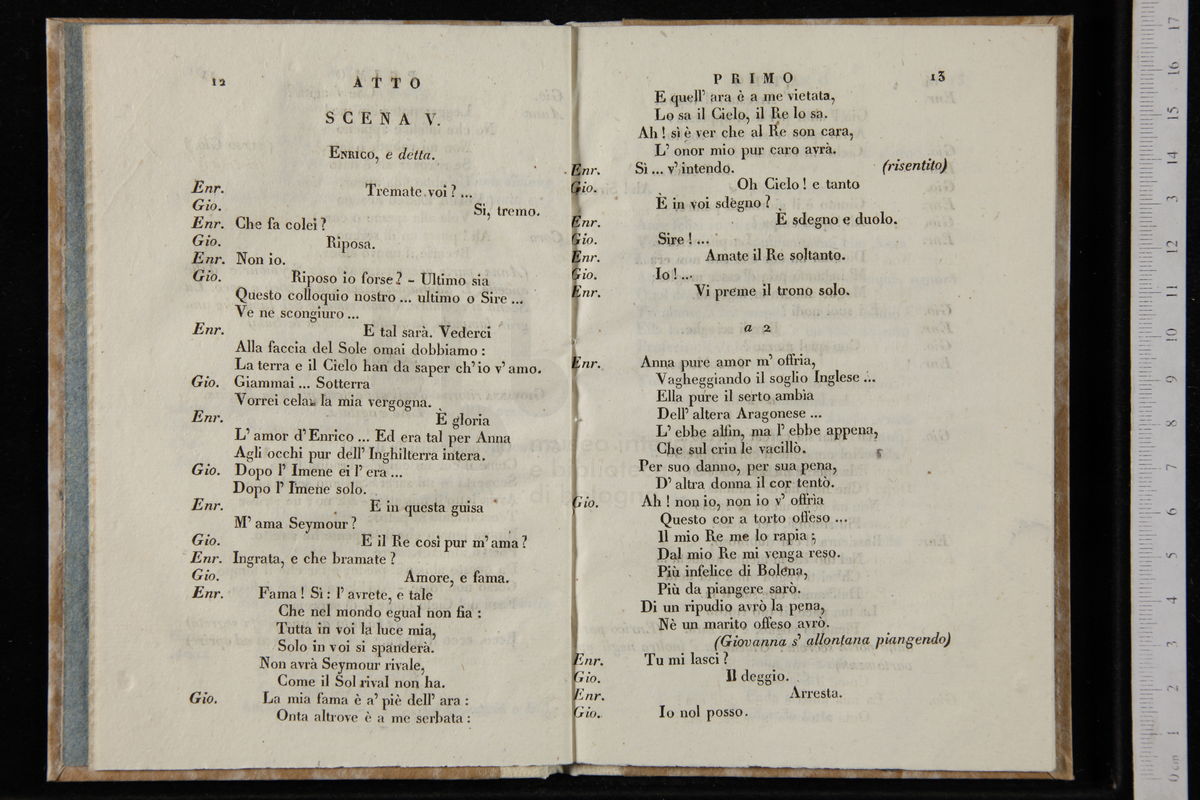 12 ATTO
SCENA V.
ENRICO, e detta.
Enr. Tremate voi ? ...
Gio. Sì, tremo.
Enr. Che fa colei ?
Gio. Riposa.
Enr. Non io.
Gio. Riposo io forse ? - Ultimo sia
Questo colloquio nostro ... ultimo o Sire ...
Ve ne scongiuro ...
Enr. E tal sarà. Vederci
Alla faccia del Sole omai dobbiamo :
La terra e il Cielo han da saper ch' io v' amo.
Gio. Giammai ... Sotterra
Vorrei celar la mia vergogna.
Enr. È gloria
L' amor d' Enrico ... Ed era tal per Anna
Agli occhi pur dell' Inghilterra intera.
Gio. Dopo l' Imene ei l' era ...
Dopo l' Imene solo.
Enr. E in questa guisa
M' ama Seymour ?
Gio. E il Re così pur m' ama ?
Enr. Ingrata, e che bramate ?
Gio. Amore, e fama.
Enr. Fama ! Sì : l' avrete, e tale
Che nel mondo egual non fia :
Tutta in voi la luce mia,
Solo in voi si spanderà.
Non avrà Seymour rivale,
Come il Sol rival non ha.
Gio. La mia fama è a' piè dell' ara :
Onta altrove è a me serbata :
PRIMO 13
E quell' ara è a me vietata,
Lo sa il Cielo, il Re lo sa.
Ah ! sì è ver che al Re son cara,
L' onor mio pur caro avrà.
Enr. Sì ... v' intendo. (risentito)
Gio. Oh Cielo ! e tanto
È in voi sdegno ?
Enr. È sdegno e duolo.
Gio. Sire ! ...
Enr. Amate il Re soltanto.
Gio. Io ! ...
Enr. Vi preme il trono solo.
a 2
Enr. Anna pure amor m' offria,
Vagheggiando il soglio Inglese ...
Ella pure il serto ambia
Dell' altera Aragonese ...
L' ebbe alfin, ma l' ebbe appena,
Che sul crin le vacillò.
Per suo danno, per sua pena,
D' altra donna il cor tentò.
Gio. Ah ! non io, non io v' offria
Questo cor a torto offeso ...
Il mio Re me lo rapia ;
Dal mio Re mi venga reso.
Più infelice di Bolena,
Più da piangere sarò.
Di un ripudio avrò la pena,
Nè un marito offeso avrò.
(Giovanna s' allontana piangendo)
Enr. Tu mi lasci ?
Gio. Il deggio.
Enr. Arresta.
Gio. Io nol posso.